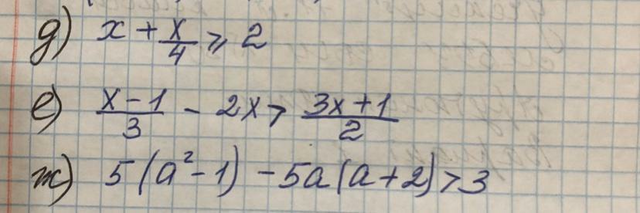 д) x + x/4 ⩾ 2
е) (x-1)/3 - 2x > (3x+1)/2
ж) 5(a²-1) - 5a(a+2) > 3